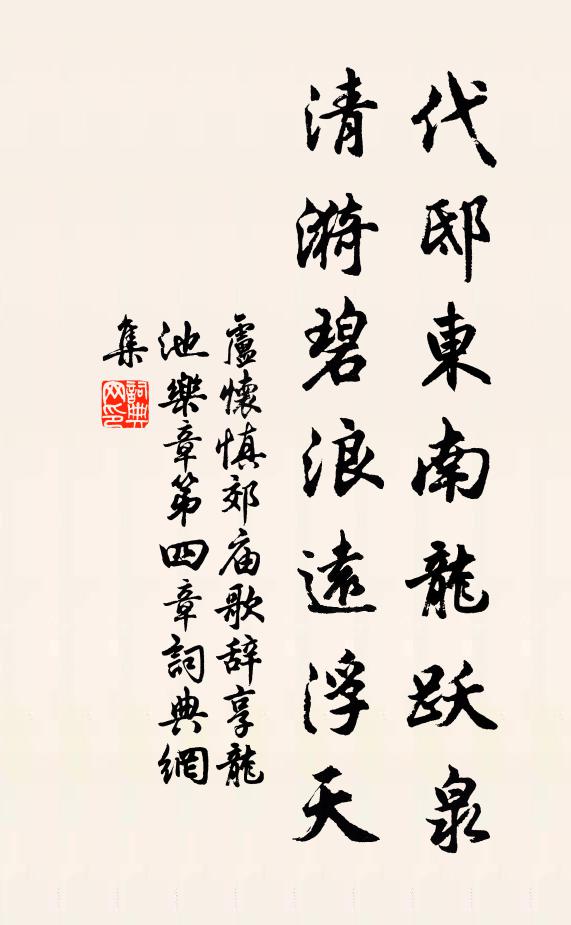 代邸東南龍跃泉
清漪碧浪遠浮天
盧懷慎郊庙歌辞享龍
池樂章第四章詞典網
集
詞典
网印